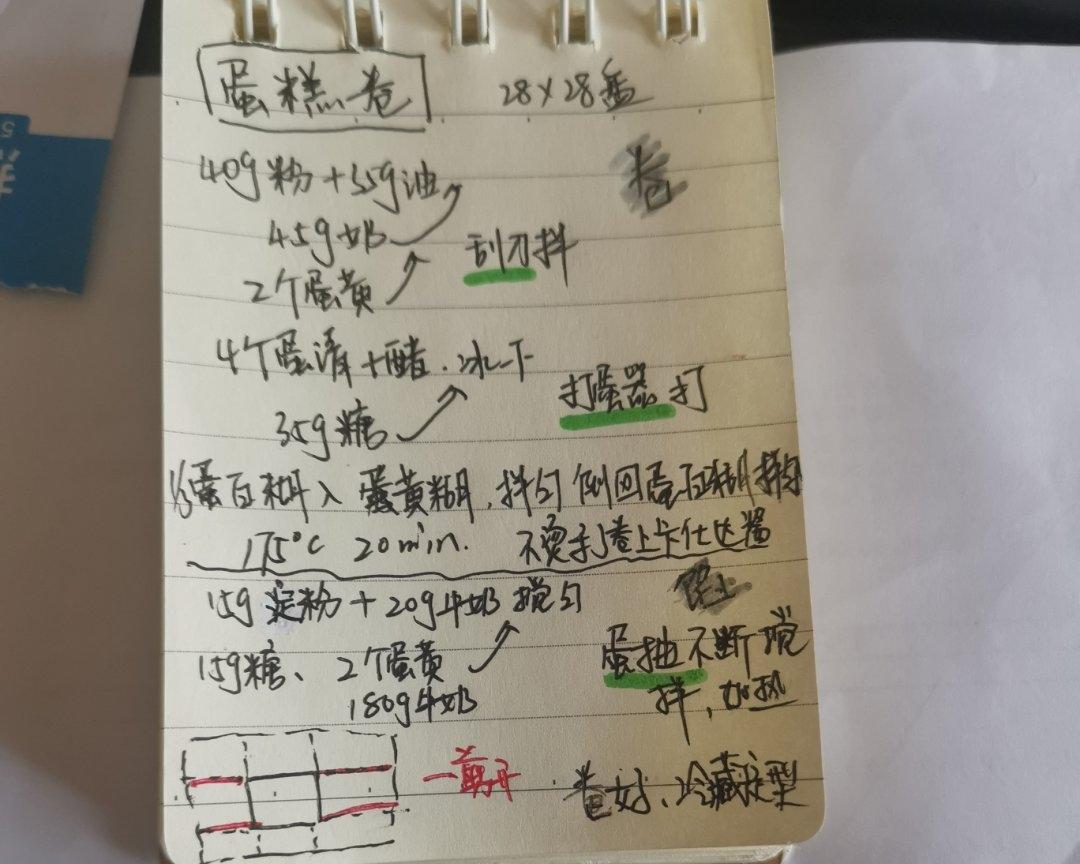 蛋糕卷 28×28盘
40g粉+35g油
卷
45g奶
刮刀拌
2个蛋黄
4个蛋清+醋.冰下
打蛋器打
35g糖
⅓蛋白糊入蛋黄糊,拌匀倒回蛋白糊拌匀
175°C 20min. 不烫手卷上卡仕达酱
15g淀粉+20g牛奶搅匀
15g糖、2个蛋黄
蛋抽不断搅
180g牛奶
拌,加热
一剪开
卷好、冷藏定型